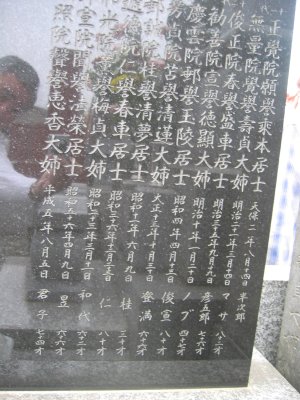 正覺院願譽乘本居士 天保二年八月十四日 半次郎
無量院覺譽壽貞大姉 明治二十一年三月十四日 マサ 八十二才
俊正院春譽盛車居士 明治二十五年九月十九日 彦五郎 七十六才
勧善院宣譽德顯大姉 明治十年一月二十日 ノブ 四十七才
慶雲院郵譽玉陵居士 昭和四年四月十三日 俊宣 八十才
大姉 大正十五年十月三十日 登満 六十六才
院桂譽清夢居士 昭和十二年六月九日 桂 三十才
仁譽春車居士 昭和二十六年十月 仁 八十才
譽梅貞大姉 昭和二十三年三月十二日 和代 六十二才
宣院 譽法榮居士 昭和五十六年四月九日 昱 六十六才
照院聲譽恵香大姉 平成五年八月五日 君子 七十四才